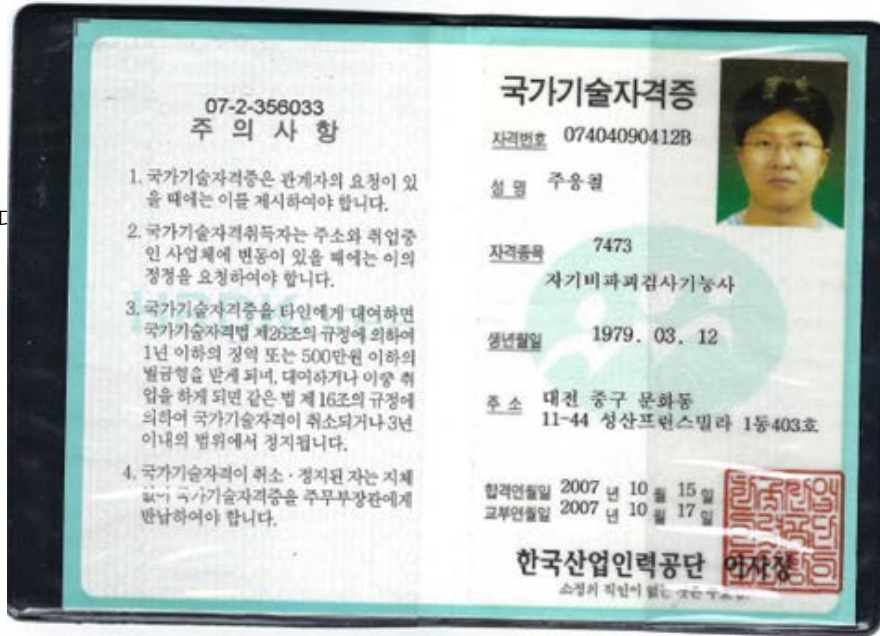 07-2-356033
주 의 사 항
1. 국가기술자격증은 관계자의 요청이 있
을 때에는 이를 제시하여야 합니다.
2. 국가기술자격취득자는 주소와 취업중
인 사업체에 변동이 있을 때에는 이의
정정을 요청하여야 합니다.
3. 국가기술자격증을 타인에게 대여하면
국가기술자격법 제26조의 규정에 의하여
1년 이하의 징역 또는 500만원 이하의
벌금형을 받게 되며, 대여하거나 이중 취
업을 하게 되면 같은 법 제16조의 규정에
의하여 국가기술자격이 취소되거나 3년
이내의 범위에서 정지됩니다.
4. 국가기술자격이 취소·정지된 자는 지체
없이 국가기술자격증을 주무부장관에게
반납하여야 합니다.
국가기술자격증
자격번호 07404090412B
성 명 주웅철
자격종목 7473
자기비파괴검사기능사
생년월일 1979. 03. 12
주 소 대전 중구 문화동
11-44 성산프런스빌라 1동403호
합격연월일 2007 년 10 월 15 일
교부연월일 2007 년 10 월 17 일
한국산업인력공단 이사장
소정의 직인이 없는 것은